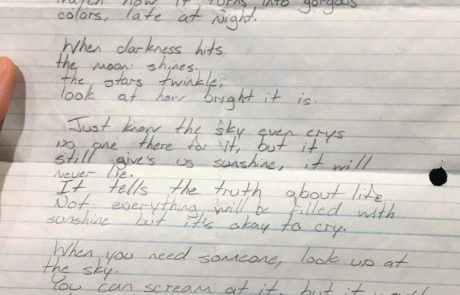 how it turns into gorgous
colors, late at night.
When darkness hits
the moon shines.
the stars twinkle,
look at how bright it is.
Just know the sky even crys
no one there for it, but it
still give's us sunshine, it will
never lie.
It tells the truth about life
Not everything will be filled with
sunshine but it's okay to cry.
When you need someone, look up at
the sky.
You can scream at it, but it